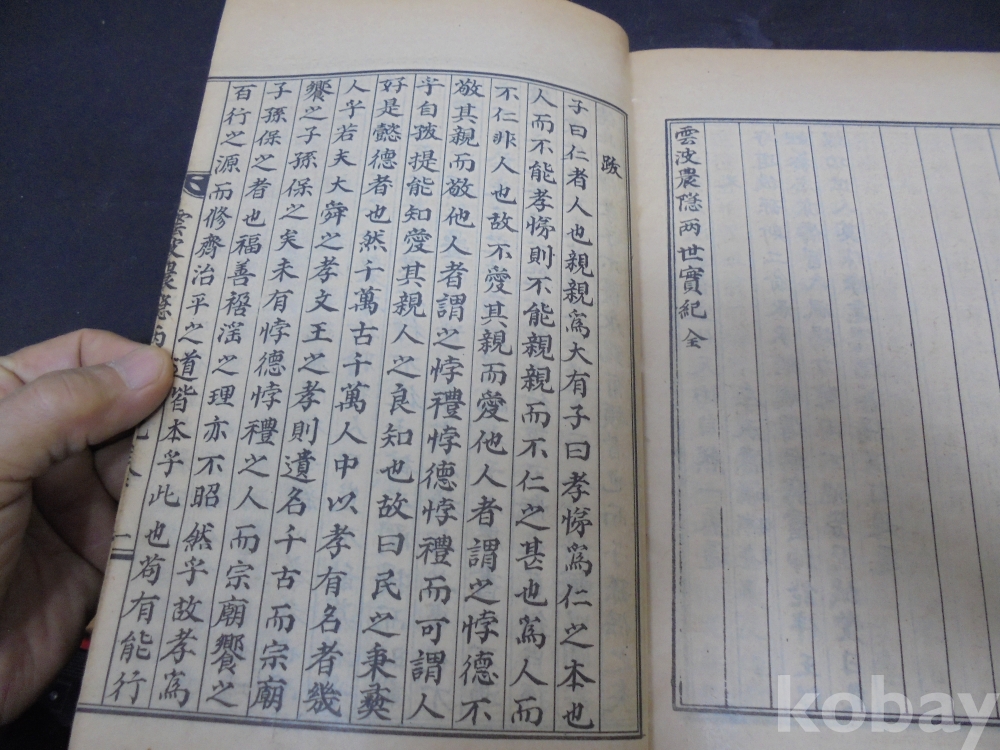 雲波農隱两世實紀 全
跋
子曰仁者人也親親爲大有子曰孝悌爲仁之本也
人而不能孝悌則不能親親而不仁之甚也爲人而
不仁非人也故不愛其親而愛他人者謂之悖德不
敬其親而敬他人者謂之悖禮悖德悖禮而可謂人
乎自孩提能知愛其親人之良知也故曰民之秉彜
好是懿德者也然千萬古千萬人中以孝有名者幾
人乎若夫大舜之孝文王之孝則遺名千古而宗廟
饗之子孫保之矣未有悖德悖禮之人而宗廟饗之
子孫保之者也福善禍淫之理亦不昭然乎故孝爲
百行之源而修齊治平之道皆本乎此也苟有能行
雲波農隱两
kobay